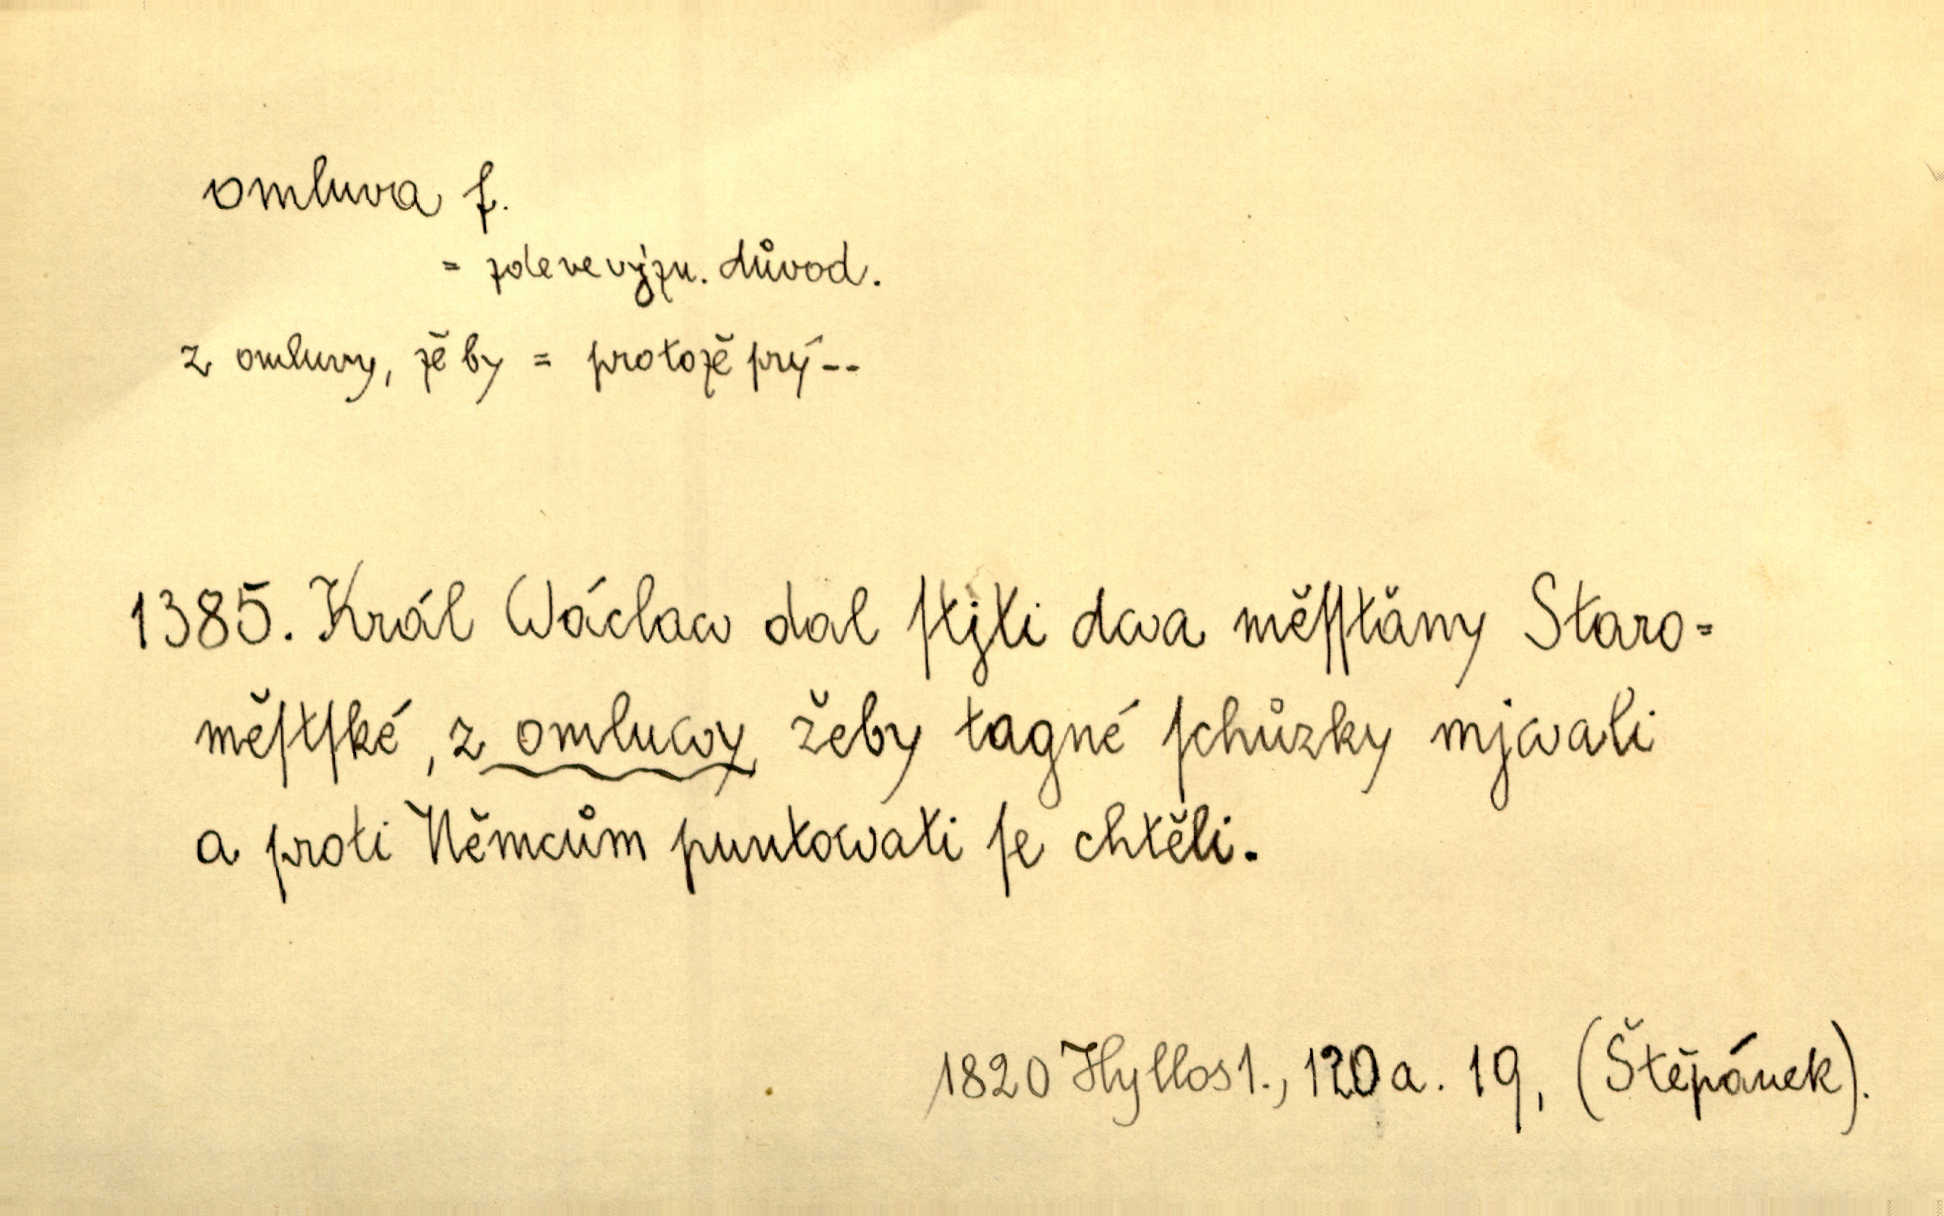 omluva f.
= zde ve význ. důvod.
z omluvy, žeby = protože prý --
1385. Král Wáclaw dal ſtjti dwa měſſťany Staro=
měſtſké, z omluwy žeby tagné ſchůzky mjwali
a proti Němcům puntowati ſe chtěli.
1820 Hyllos 1., 120 a. 19, (Štěpánek).